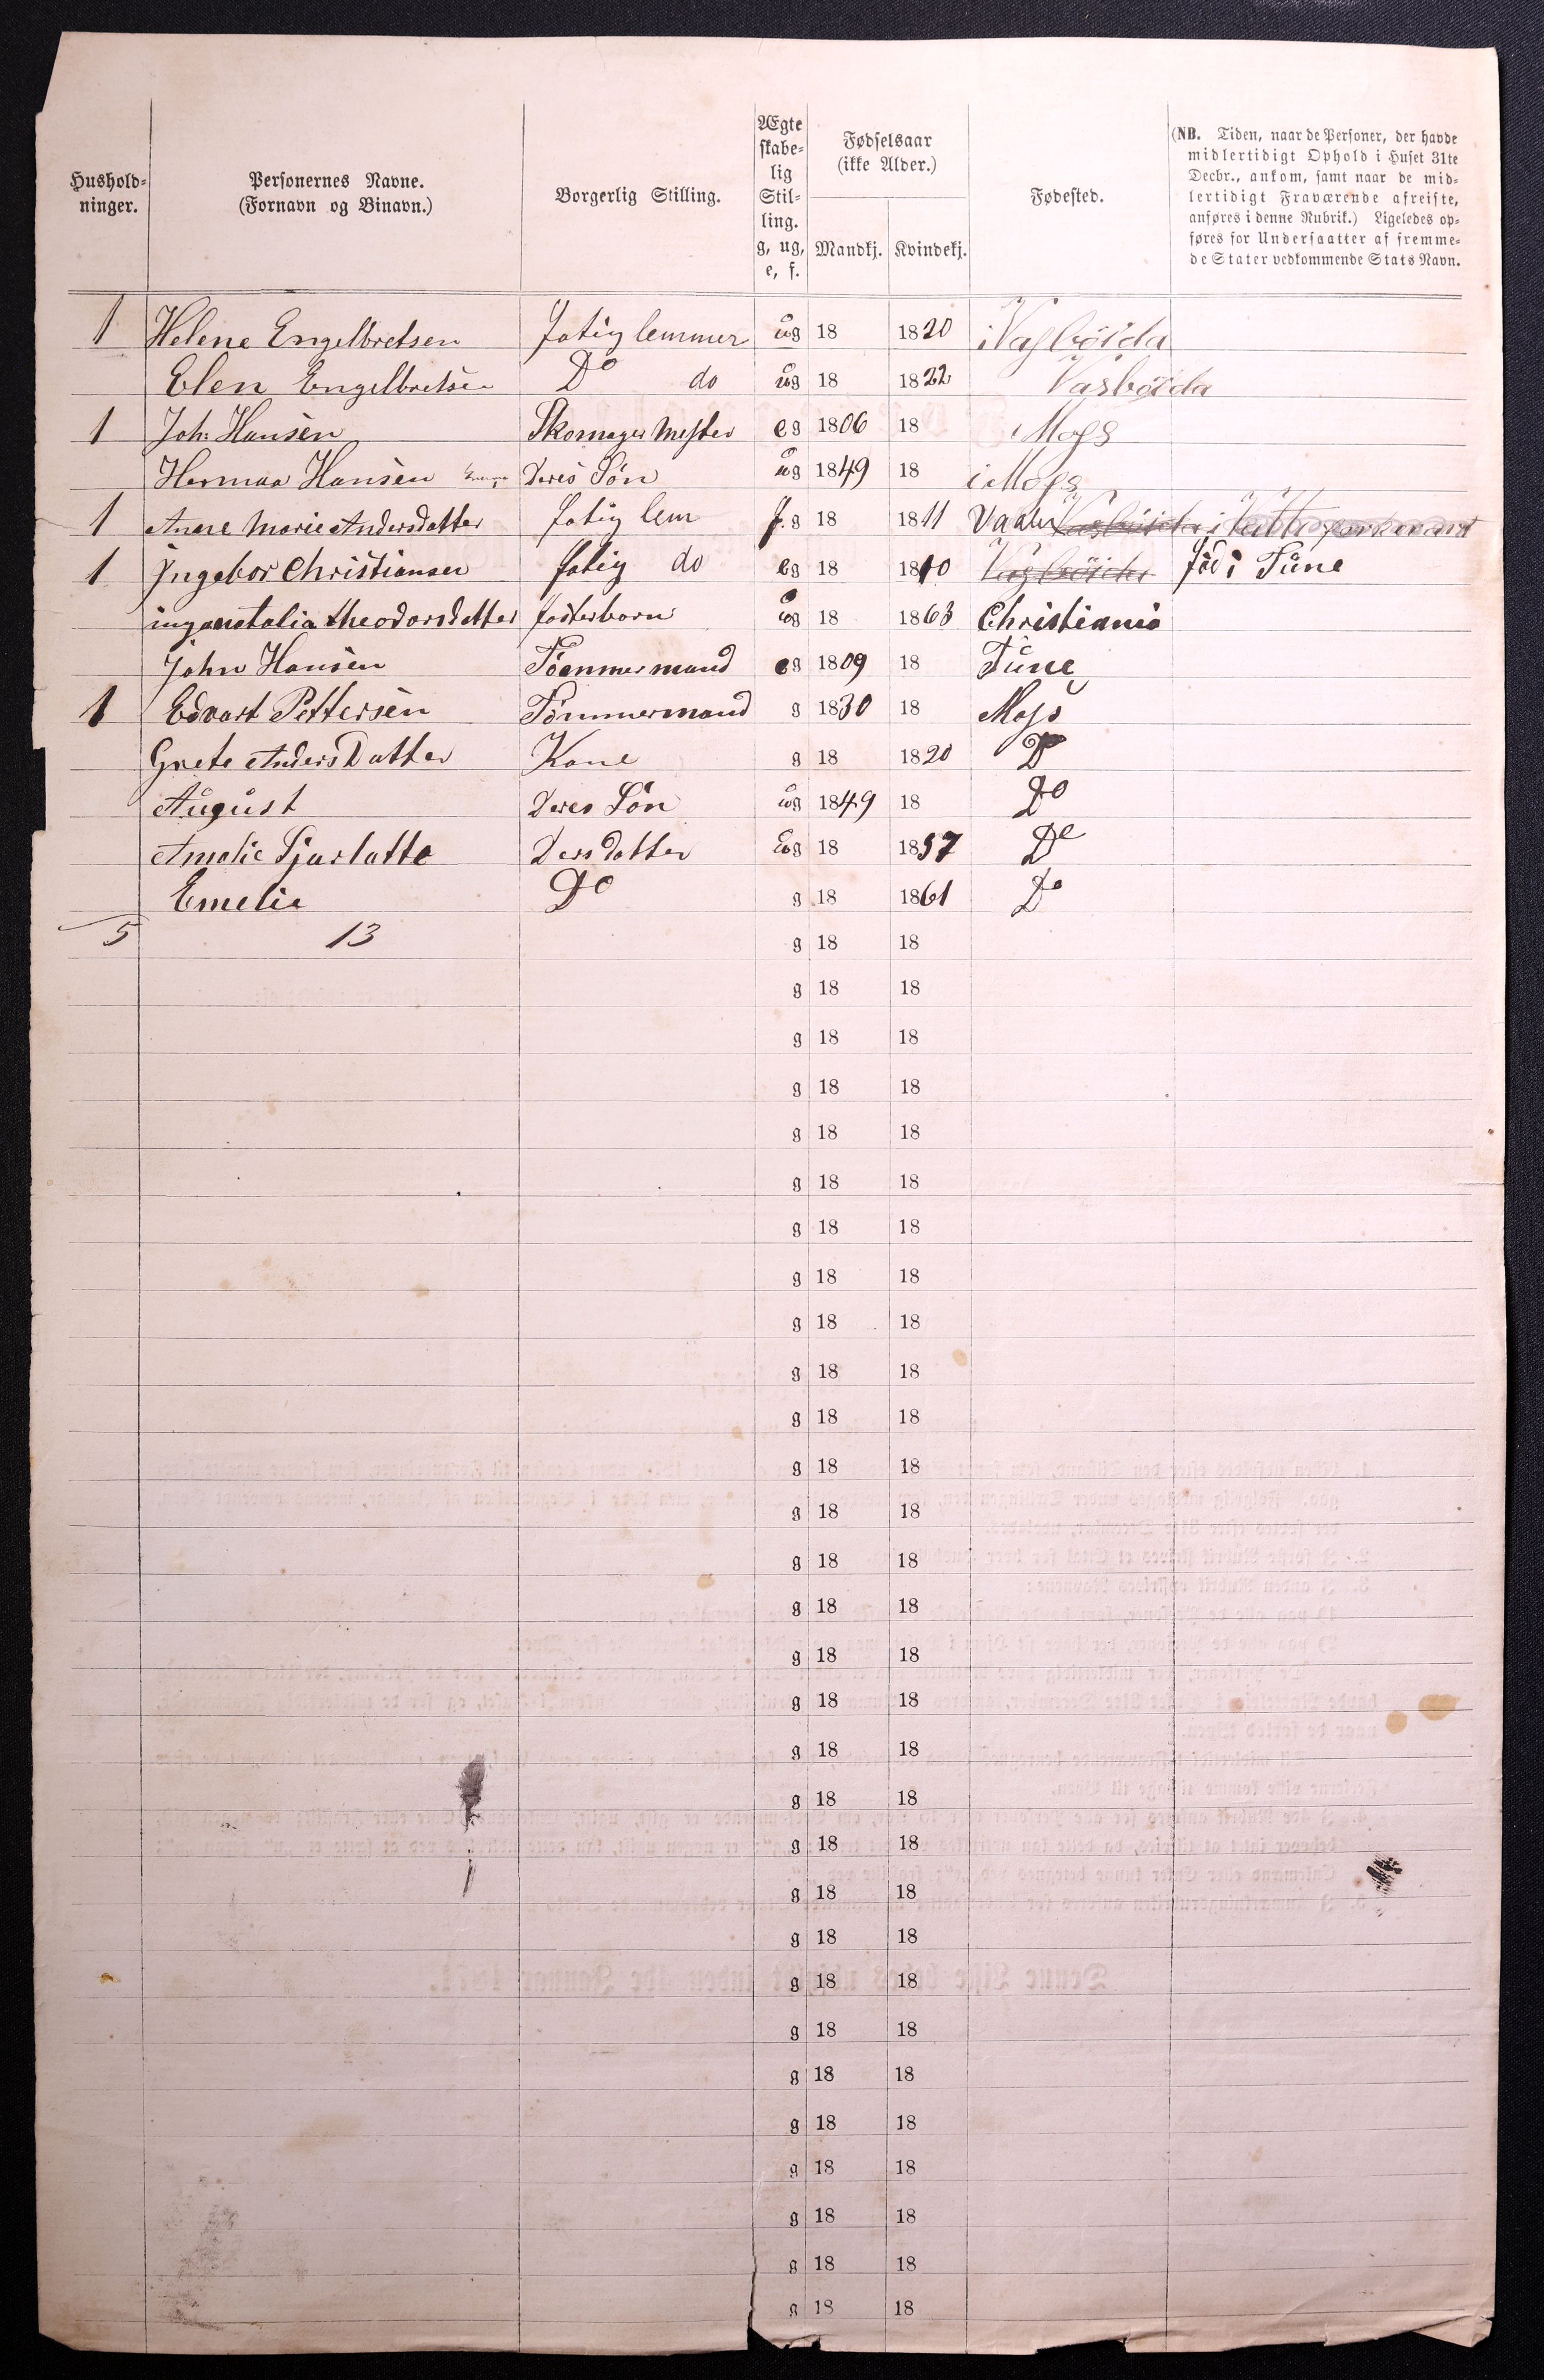 Hushold-
ninger.
Personernes Navne.
(Fornavn og Binavn.)
Borgerlig Stilling.
Ægte
skabe-
lig
Stil-
ling.
g, ug,
e, f.
Fødselsaar
(ikke Alder.)
Mandkj. Kvindekj.
Fødested.
(NB. Tiden, naar de Personer, der havde
midlertidigt Ophold i Huset 31te
Decbr., ankom, samt naar de mid-
lertidigt Fraværende afreiste,
anføres i denne Rubrik.) Ligeledes op-
føres for Undersaatter af fremme-
de Stater vedkommende Stats Navn.
1 Helene Engelbretsen fatig lemmer ug 18 1820 i Vasböida
Elen Engelbretsen Do do ug 18 1822 Vasböida
1 Joh: Hansen Skomager Mester eg 1806 18 Moss
Herman Hansen Deres Sön ug 1849 18 i Moss
1 Anne Marie Andersdatter fatig lem f. g 18 1811 Vaaler Vasböida i
1 Jngebor Christiansen fatig do eg 18 1810 Vasböida föd i Tüne
inga natalia theodorsdatter fosterbarn ug 18 1863 Christiania
John Hansen Töemmermand eg 1809 18 Tüne
1 Edvart Pettersen Tömmermand g 1830 18 Moss
Grete Anders Datter Kone g 18 1820 Do
August Deres Sön ug 1849 18 Do
Amalie Sjarlatte Ders datter ug 18 1857 Do
Emelie Do g 18 1861 Do
5 13 g 18 18
g 18 18
g 18 18
g 18 18
g 18 18
g 18 18
g 18 18
g 18 18
g 18 18
g 18 18
g 18 18
g 18 18
g 18 18
g 18 18
g 18 18
g 18 18
g 18 18
g 18 18
g 18 18
g 18 18
g 18 18
g 18 18
g 18 18
g 18 18
g 18 18
g 18 18
g 18 18
g 18 18
g 18 18
g 18 18